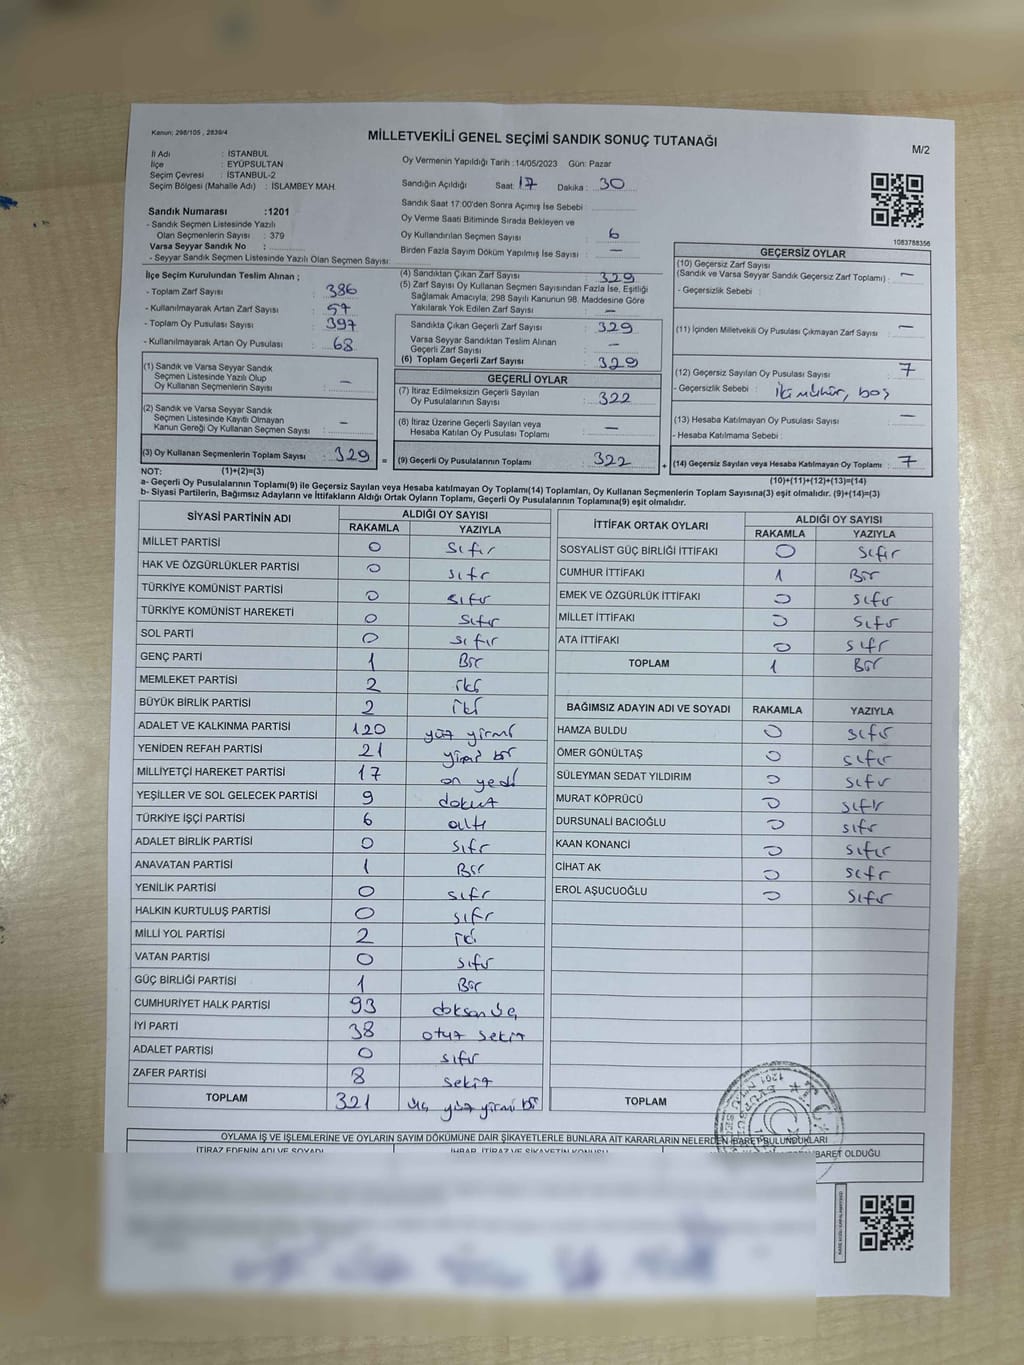 Kanun: 298/105 , 2839/4
MİLLETVEKİLİ GENEL SEÇİMİ SANDIK SONUÇ TUTANAĞI
M/2
İl Adı : İSTANBUL
İlçe : EYÜPSULTAN
Seçim Çevresi : İSTANBUL-2
Seçim Bölgesi (Mahalle Adı) : İSLAMBEY MAH.
Sandık Numarası :1201
- Sandık Seçmen Listesinde Yazılı
Olan Seçmenlerin Sayısı : 379
Varsa Seyyar Sandık No :
- Seyyar Sandık Seçmen Listesinde Yazılı Olan Seçmen Sayısı:
Oy Vermenin Yapıldığı Tarih :14/05/2023 Gün: Pazar
Sandığın Açıldığı Saat: 17 Dakika : 30
Sandık Saat 17:00'den Sonra Açımış İse Sebebi
Oy Verme Saati Bitiminde Sırada Bekleyen ve
Oy Kullandırılan Seçmen Sayısı : 6
Birden Fazla Sayım Döküm Yapılmış İse Sayısı : —
1083788356
İlçe Seçim Kurulundan Teslim Alınan ;
- Toplam Zarf Sayısı : 386
- Kullanılmayarak Artan Zarf Sayısı : 57
- Toplam Oy Pusulası Sayısı : 397
- Kullanılmayarak Artan Oy Pusulası : 68
(1) Sandık ve Varsa Seyyar Sandık
Seçmen Listesinde Yazılı Olup
Oy Kullanan Seçmenlerin Sayısı : —
(2) Sandık ve Varsa Seyyar Sandık
Seçmen Listesinde Kayıtlı Olmayan
Kanun Gereği Oy Kullanan Seçmen Sayısı : —
(3) Oy Kullanan Seçmenlerin Toplam Sayısı : 329 =
(4) Sandıktan Çıkan Zarf Sayısı : 329
(5) Zarf Sayısı Oy Kullanan Seçmen Sayısından Fazla İse, Eşitliği
Sağlamak Amacıyla, 298 Sayılı Kanunun 98. Maddesine Göre
Yakılarak Yok Edilen Zarf Sayısı : —
Sandıkta Çıkan Geçerli Zarf Sayısı : 329
Varsa Seyyar Sandıktan Teslim Alınan
Geçerli Zarf Sayısı : —
(6) Toplam Geçerli Zarf Sayısı : 329
GEÇERLİ OYLAR
(7) İtiraz Edilmeksizin Geçerli Sayılan
Oy Pusulalarının Sayısı : 322
(8) İtiraz Üzerine Geçerli Sayılan veya
Hesaba Katılan Oy Pusulası Toplamı : —
(9) Geçerli Oy Pusulalarının Toplamı : 322 +
GEÇERSİZ OYLAR
(10) Geçersiz Zarf Sayısı
(Sandık ve Varsa Seyyar Sandık Geçersiz Zarf Toplamı) : —
- Geçersizlik Sebebi :
(11) İçinden Milletvekili Oy Pusulası Çıkmayan Zarf Sayısı : —
(12) Geçersiz Sayılan Oy Pusulası Sayısı : 7
- Geçersizlik Sebebi : İki mühür, boş
(13) Hesaba Katılmayan Oy Pusulası Sayısı : —
- Hesaba Katılmama Sebebi :
(14) Geçersiz Sayılan veya Hesaba Katılmayan Oy Toplamı : 7
NOT: (1)+(2)=(3) (10)+(11)+(12)+(13)=(14)
a- Geçerli Oy Pusulalarının Toplamı(9) ile Geçersiz Sayılan veya Hesaba katılmayan Oy Toplamı(14) Toplamları, Oy Kullanan Seçmenlerin Toplam Sayısına(3) eşit olmalıdır. (9)+(14)=(3)
b- Siyasi Partilerin, Bağımsız Adayların ve İttifakların Aldığı Ortak Oyların Toplamı, Geçerli Oy Pusulalarının Toplamına(9) eşit olmalıdır.
SİYASİ PARTİNİN ADI ALDIĞI OY SAYISI
RAKAMLA YAZIYLA
MİLLET PARTİSİ 0 sıfır
HAK VE ÖZGÜRLÜKLER PARTİSİ 0 sıfır
TÜRKİYE KOMÜNİST PARTİSİ 0 sıfır
TÜRKİYE KOMÜNİST HAREKETİ 0 sıfır
SOL PARTİ 0 sıfır
GENÇ PARTİ 1 Bir
MEMLEKET PARTİSİ 2 iki
BÜYÜK BİRLİK PARTİSİ 2 iki
ADALET VE KALKINMA PARTİSİ 120 yüz yirmi
YENİDEN REFAH PARTİSİ 21 yirmi bir
MİLLİYETÇİ HAREKET PARTİSİ 17 on yedi
YEŞİLLER VE SOL GELECEK PARTİSİ 9 dokuz
TÜRKİYE İŞÇİ PARTİSİ 6 altı
ADALET BİRLİK PARTİSİ 0 sıfır
ANAVATAN PARTİSİ 1 Bir
YENİLİK PARTİSİ 0 sıfır
HALKIN KURTULUŞ PARTİSİ 0 sıfır
MİLLİ YOL PARTİSİ 2 iki
VATAN PARTİSİ 0 sıfır
GÜÇ BİRLİĞİ PARTİSİ 1 Bir
CUMHURİYET HALK PARTİSİ 93 doksan üç
İYİ PARTİ 38 otuz sekiz
ADALET PARTİSİ 0 sıfır
ZAFER PARTİSİ 8 sekiz
TOPLAM 321 üç yüz yirmi bir
İTTİFAK ORTAK OYLARI ALDIĞI OY SAYISI
RAKAMLA YAZIYLA
SOSYALİST GÜÇ BİRLİĞİ İTTİFAKI 0 sıfır
CUMHUR İTTİFAKI 1 Bir
EMEK VE ÖZGÜRLÜK İTTİFAKI 0 sıfır
MİLLET İTTİFAKI 0 sıfır
ATA İTTİFAKI 0 sıfır
TOPLAM 1 Bir
BAĞIMSIZ ADAYIN ADI VE SOYADI RAKAMLA YAZIYLA
HAMZA BULDU 0 sıfır
ÖMER GÖNÜLTAŞ 0 sıfır
SÜLEYMAN SEDAT YILDIRIM 0 sıfır
MURAT KÖPRÜCÜ 0 sıfır
DURSUNALİ BACIOĞLU 0 sıfır
KAAN KONANCİ 0 sıfır
CİHAT AK 0 sıfır
EROL AŞUCUOĞLU 0 sıfır
TOPLAM
OYLAMA İŞ VE İŞLEMLERİNE VE OYLARIN SAYIM DÖKÜMÜNE DAİR ŞİKAYETLERLE BUNLARA AİT KARARLARIN NELERDEN İBARET BULUNDUKLARI
İTİRAZ EDENİN ADI VE SOYADI İHBAR, İTİRAZ VE ŞİKAYETİN KONUSU BARET OLDUĞU